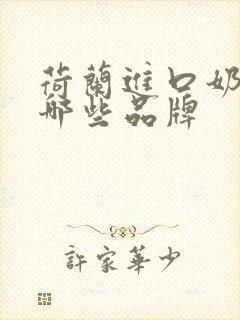 荷蘭進口奶
哪些品牌
許家華少